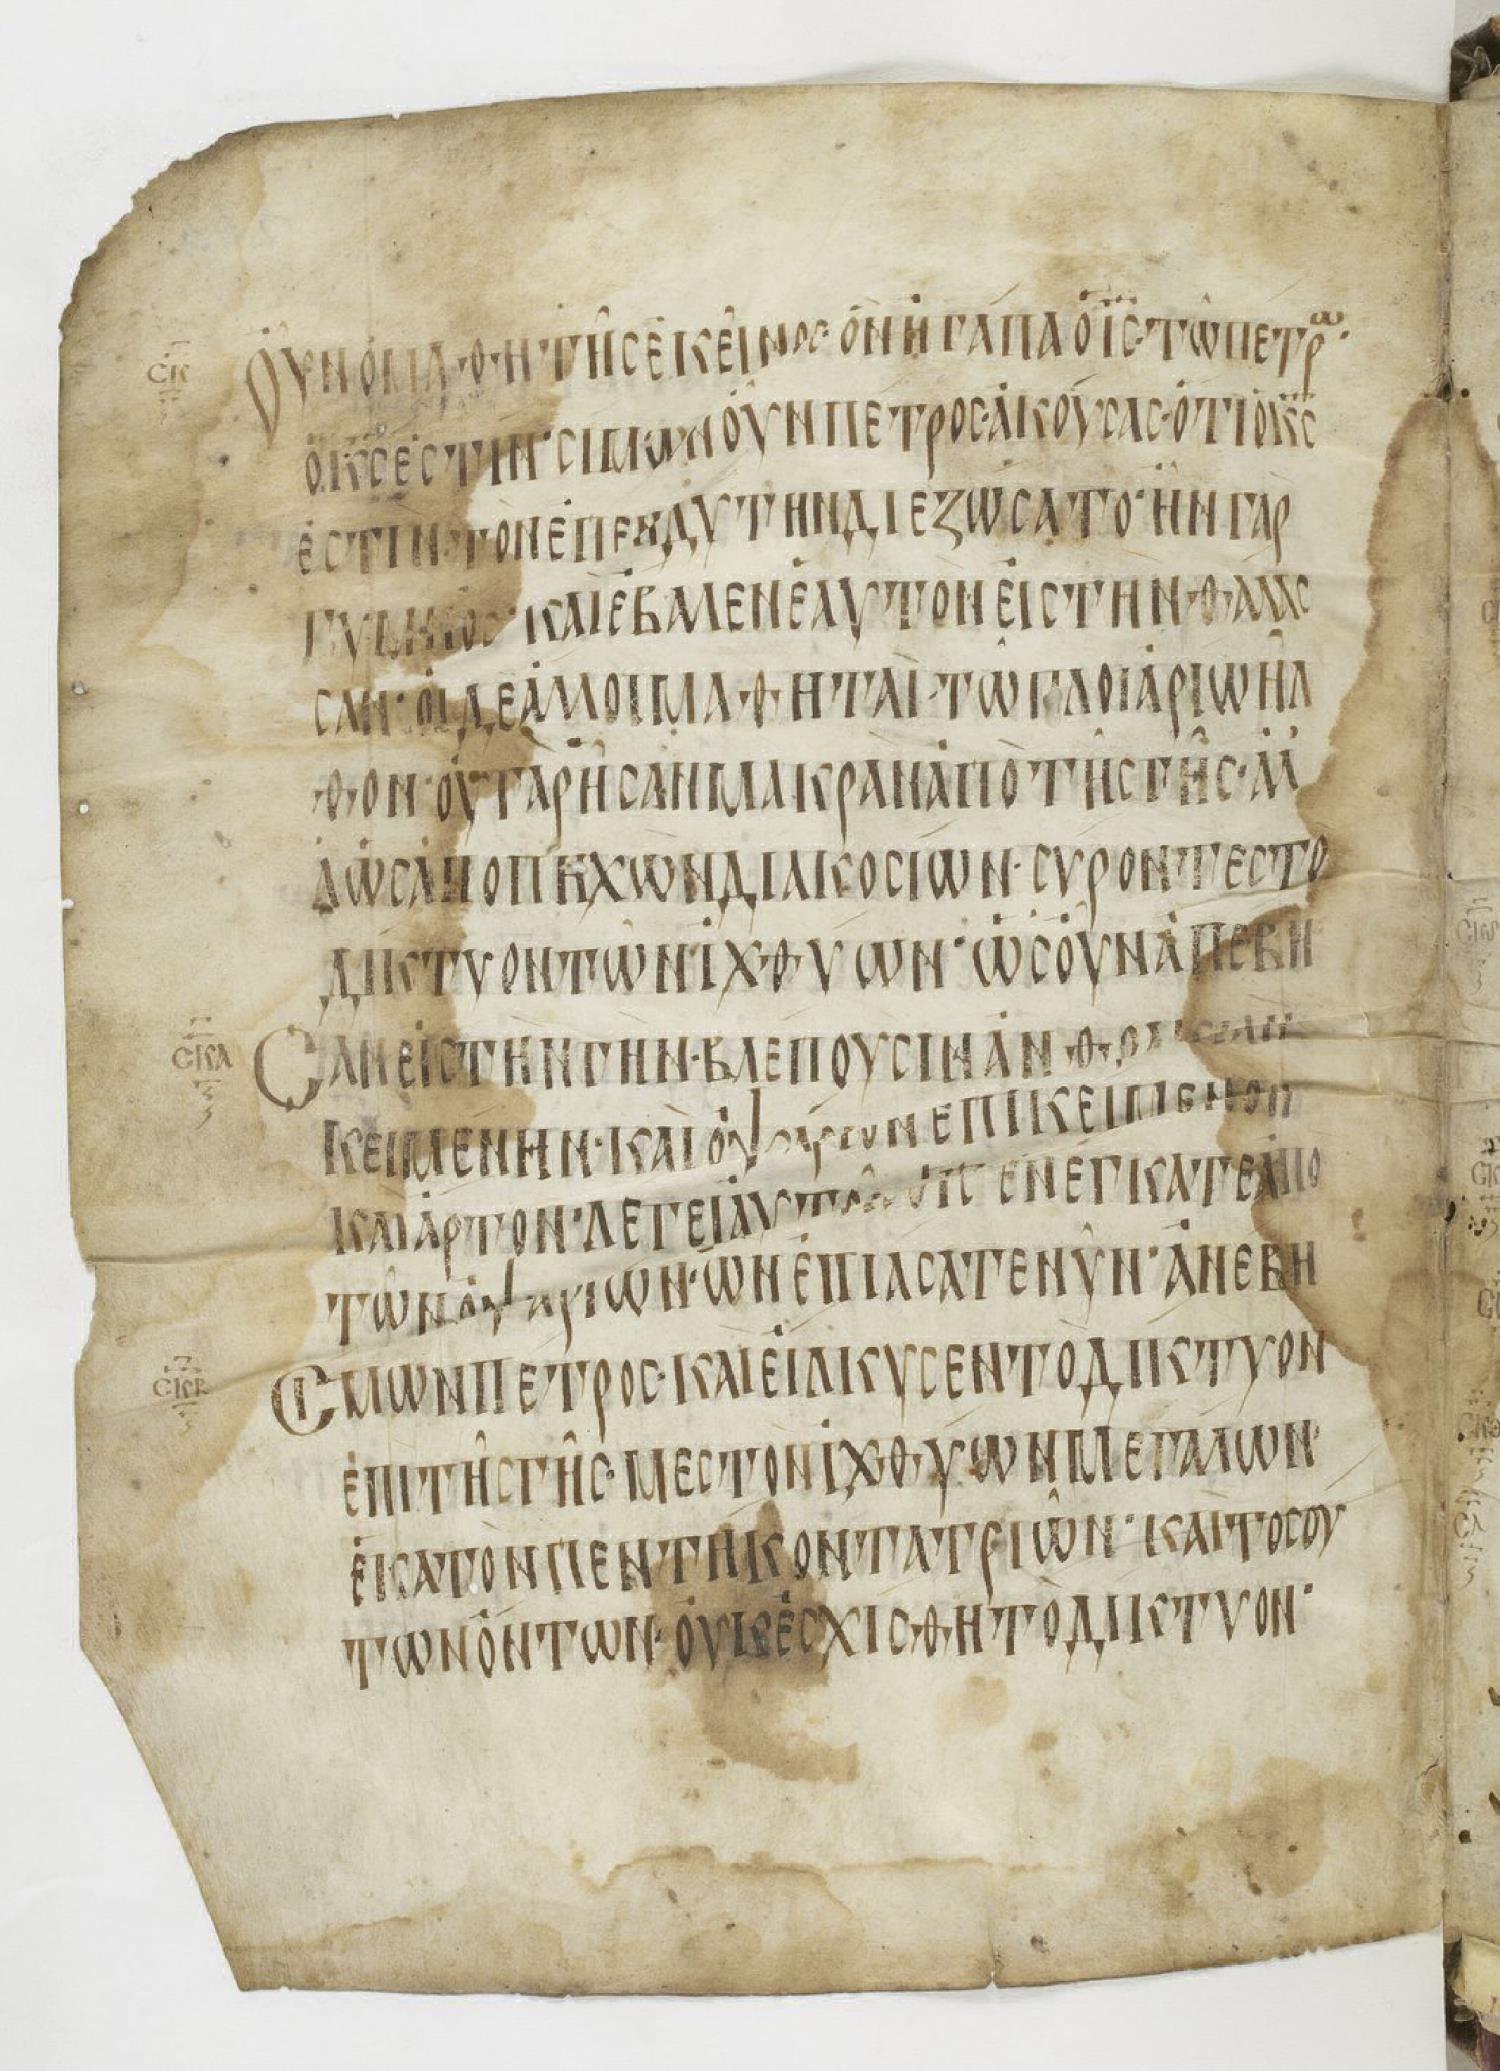 ΟΥΝ Ὁ ΜΑΘΗΤῊς ἘΚΕῖΝος· ὋΝ ἨΓΑΠΑ Ὁ Ις· ΤῶΠΕΤΡω·
Ὁ Κς ἘςΤΙΝ· ςΙΜωΝ ΟὖΝ ΠΕΤΡΟς· ἈΚΟΥςΑς· ὍΤΙ Ὁ Κς
ἘςΤΙΝ· ΤῸΝ ἘΠΕΝΔΥΤΗΝ ΔΙΕΖωςΑΤΟ· ἮΝ ΓᾺΡ
ΓΥΜΝΟς· ΚΑῚ ἜΒΑΛΕΝ ἙΑΥΤΟΝ ΕἸς ΤΗΝ ΘΑΛΑς
ςΑΝ· ΟἹ ΔΕ ἌΛΛΟΙ ΜΑΘΗΤΑῚ· Τῶ ΠΛΟΙΑΡΙω ἮΛ
ΘΟΝ· ΟΥ ΓᾺΡ ἮςΑΝ ΜΑΚΡᾺΝ ἈΠῸ ΤῆςΓῆς· ἈΛ
ΛῺς ἈΠΟ ΠΗΧωΝ ΔΙΑΚΟςΙωΝ· ςΥΡΟΝΤΕς ΤΟ
ΔΙΚΤΥΟΝ ΤῶΝ ἸΧΘΥωΝ· Ὡς ΟὖΝ ἈΠΕΒΗ
ςΑΝ ΕἸς ΤΗΝ ΓΗΝ· ΒΛΕΠΟΥςΙΝ ἈΝΘΡΑΚΙΑΝ
ΚΕΙΜΕΝΗΝ· ΚΑῚ ὈΨΑΡΙΟΝ ΕΠΙΚΕΙΜΕΝΟΝ
ΚΑῚ ἌΡΤΟΝ· ΛΕΓΕΙ ἈΥΤΟῖς Ὁ Ις ΕΝΕΓΚΑΤΕ ἈΠΟ
ΤῶΝ ὈΨΑΡΙωΝ· ὯΝ ἘΠΙΑςΑΤΕ ΝΥΝ· ἈΝΕΒΗ
ςΙΜωΝ ΠΕΤΡΟς· ΚΑῚ ΕἹΛΚΥςΕΝ ΤῸ ΔΙΚΤΥΟΝ
ἘΠΙ ΤῆςΓῆς· ΜΕςΤΟΝ ἸΧΘΥωΝ ΜΕΓΑΛωΝ·
ἙΚΑΤΟΝ ΠΕΝΤΗΚΟΝΤΑΤΡΙῶΝ· ΚΑῚ ΤΟςΟΥ
ΤωΝ ὌΝΤωΝ· ΟΥΚ ἘςΧΙςΘΗ ΤῸ ΔΙΚΤΥΟΝ·
ςΚ
ςΚΑ
ςΚΒ